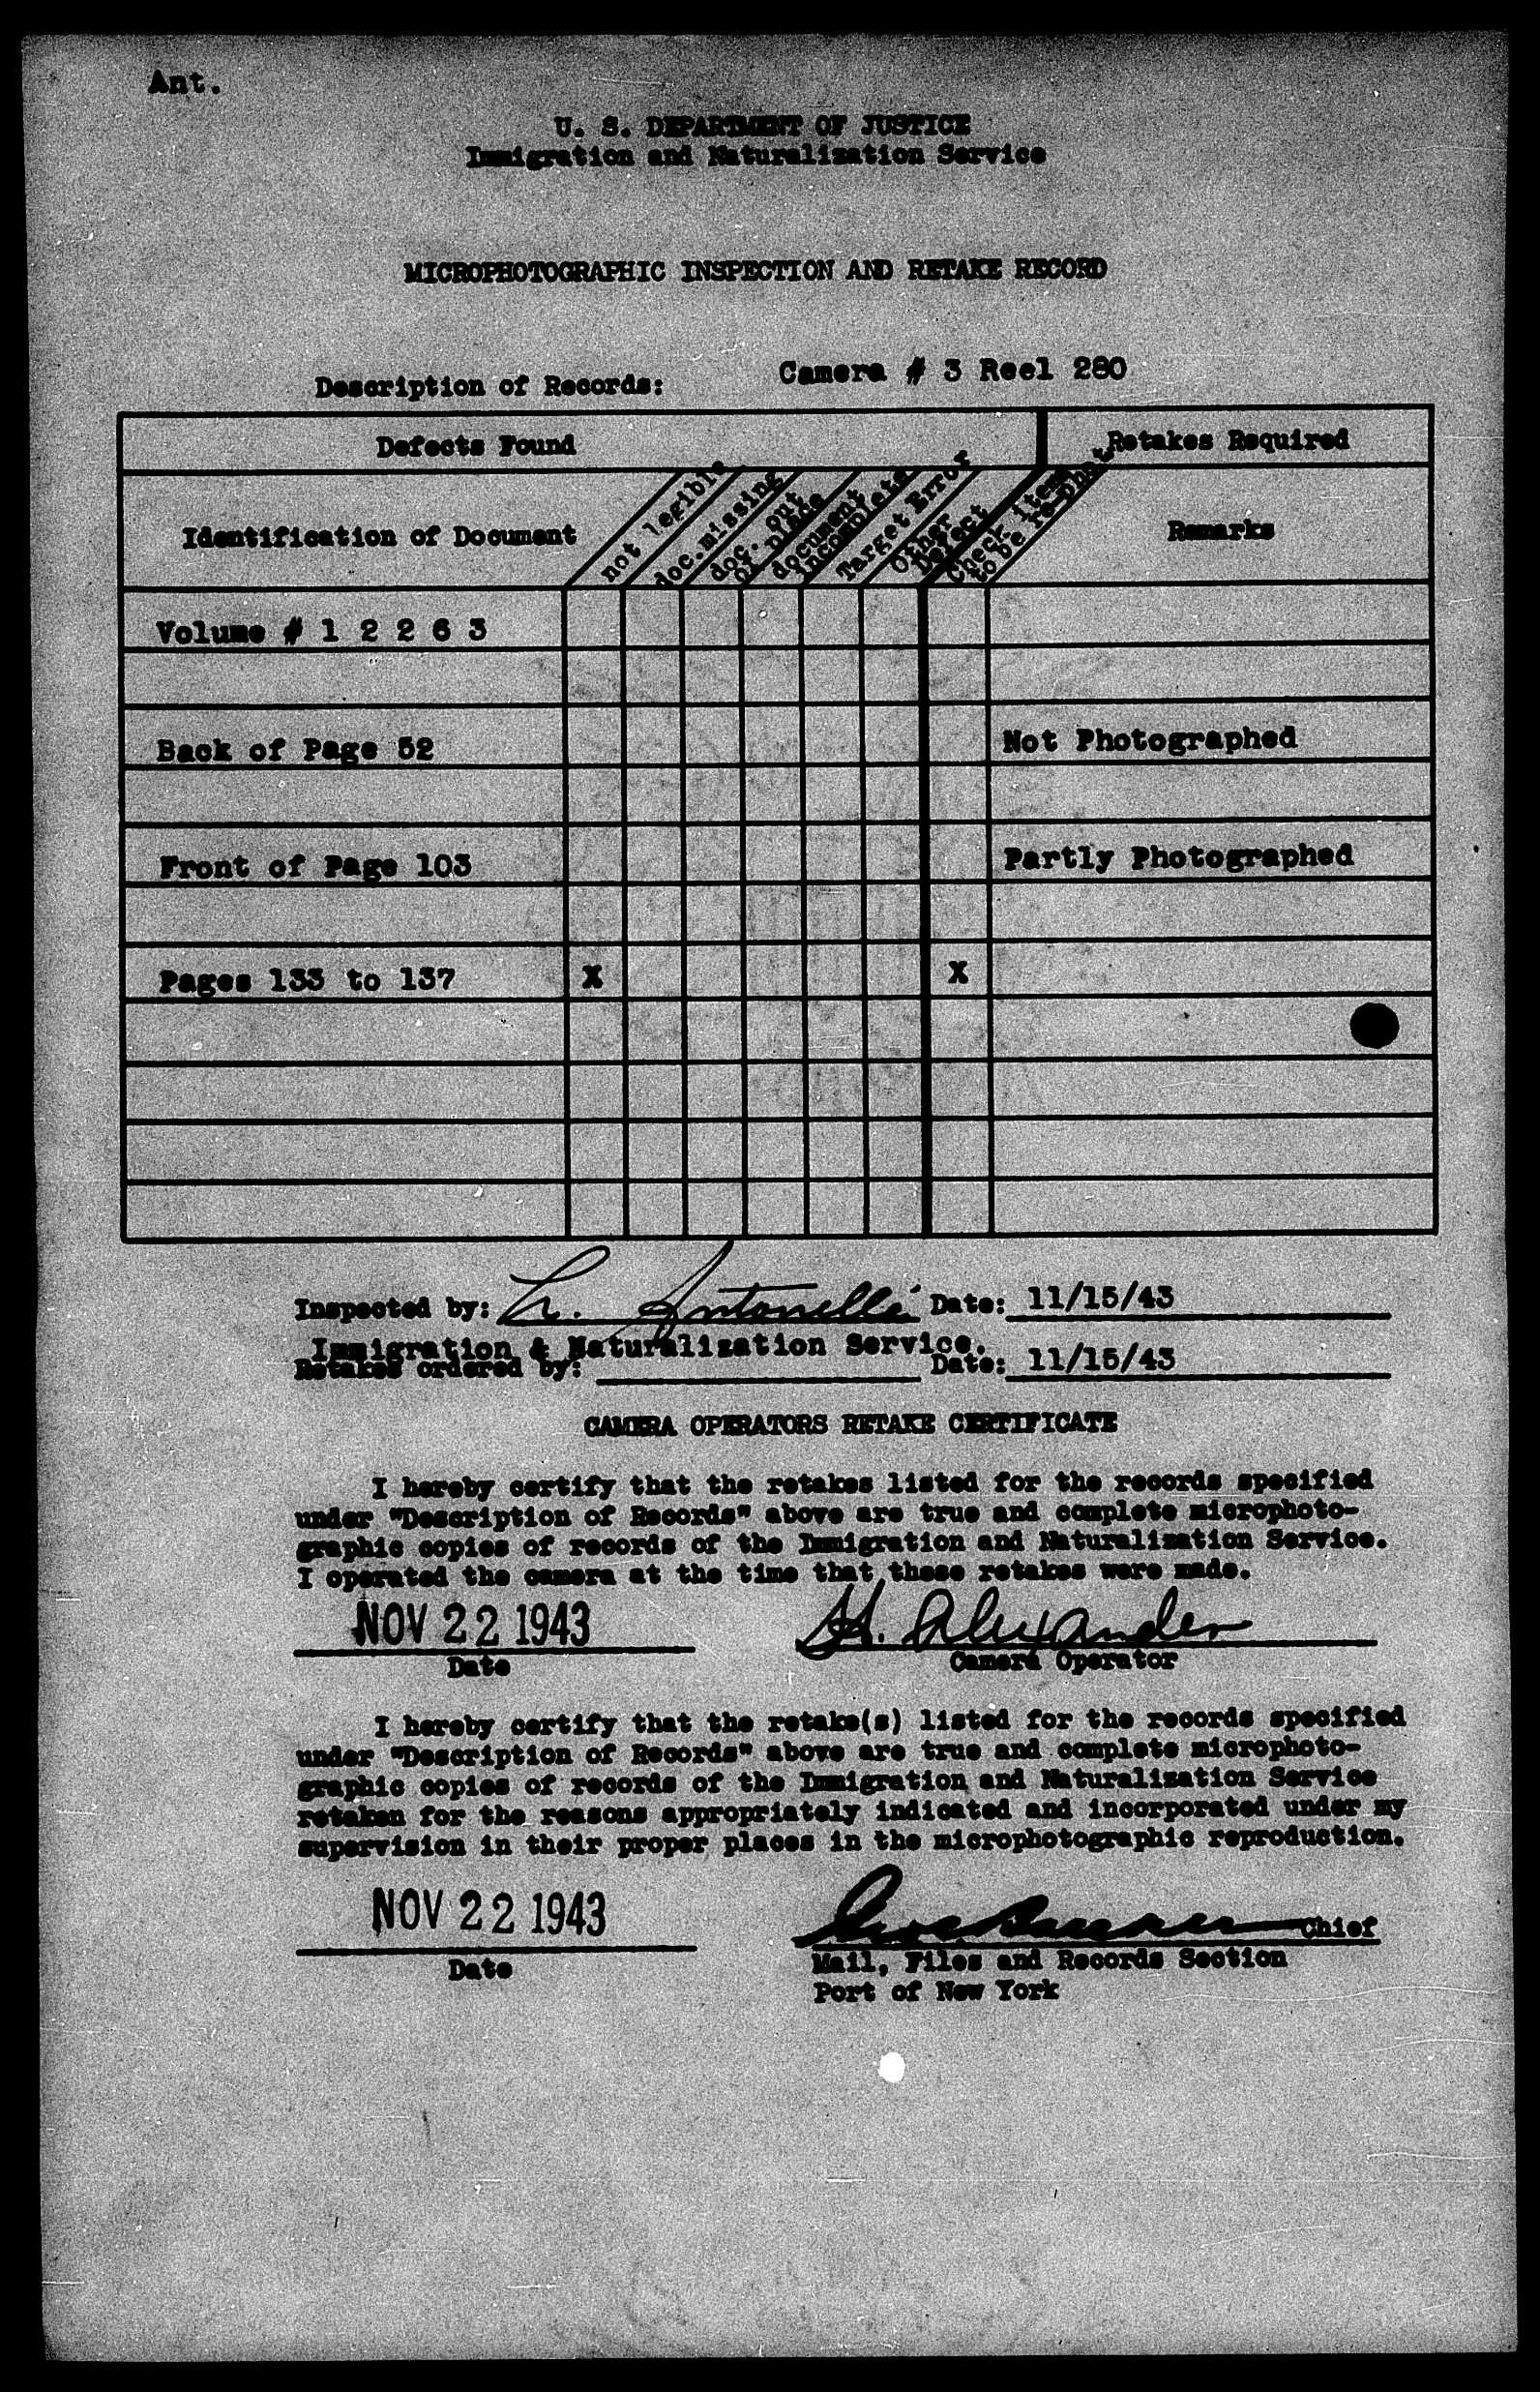 Ant.
U. S. DEPARTMENT OF JUSTICE
Immigration and Naturalization Service
MICROPHOTOGRAPHIC INSPECTION AND RETAKE RECORD
Description of Records: Camera # 3 Reel 280
Defects Found Retakes Required
Identification of Document
not legible
doc. missing
doc. out
of place
document
incomplete
Target Error
Other
Defect
Check items
to be re-phot.
Remarks
Volume # 1 2 2 6 3
Back of Page 52 Not Photographed
Front of Page 103 Partly Photographed
Pages 133 to 137 X X
Inspected by: L. Antonelli Date: 11/15/43
Immigration & Naturalization Service.
Retakes ordered by: Date: 11/15/43
CAMERA OPERATORS RETAKE CERTIFICATE
I hereby certify that the retakes listed for the records specified
under "Description of Records" above are true and complete microphoto-
graphic copies of records of the Immigration and Naturalization Service.
I operated the camera at the time that these retakes were made.
NOV 22 1943 H. Alexander
Date Camera Operator
I hereby certify that the retake(s) listed for the records specified
under "Description of Records" above are true and complete microphoto-
graphic copies of records of the Immigration and Naturalization Service
retaken for the reasons appropriately indicated and incorporated under my
supervision in their proper places in the microphotographic reproduction.
NOV 22 1943 Chief
Date Mail, Files and Records Section
Port of New York